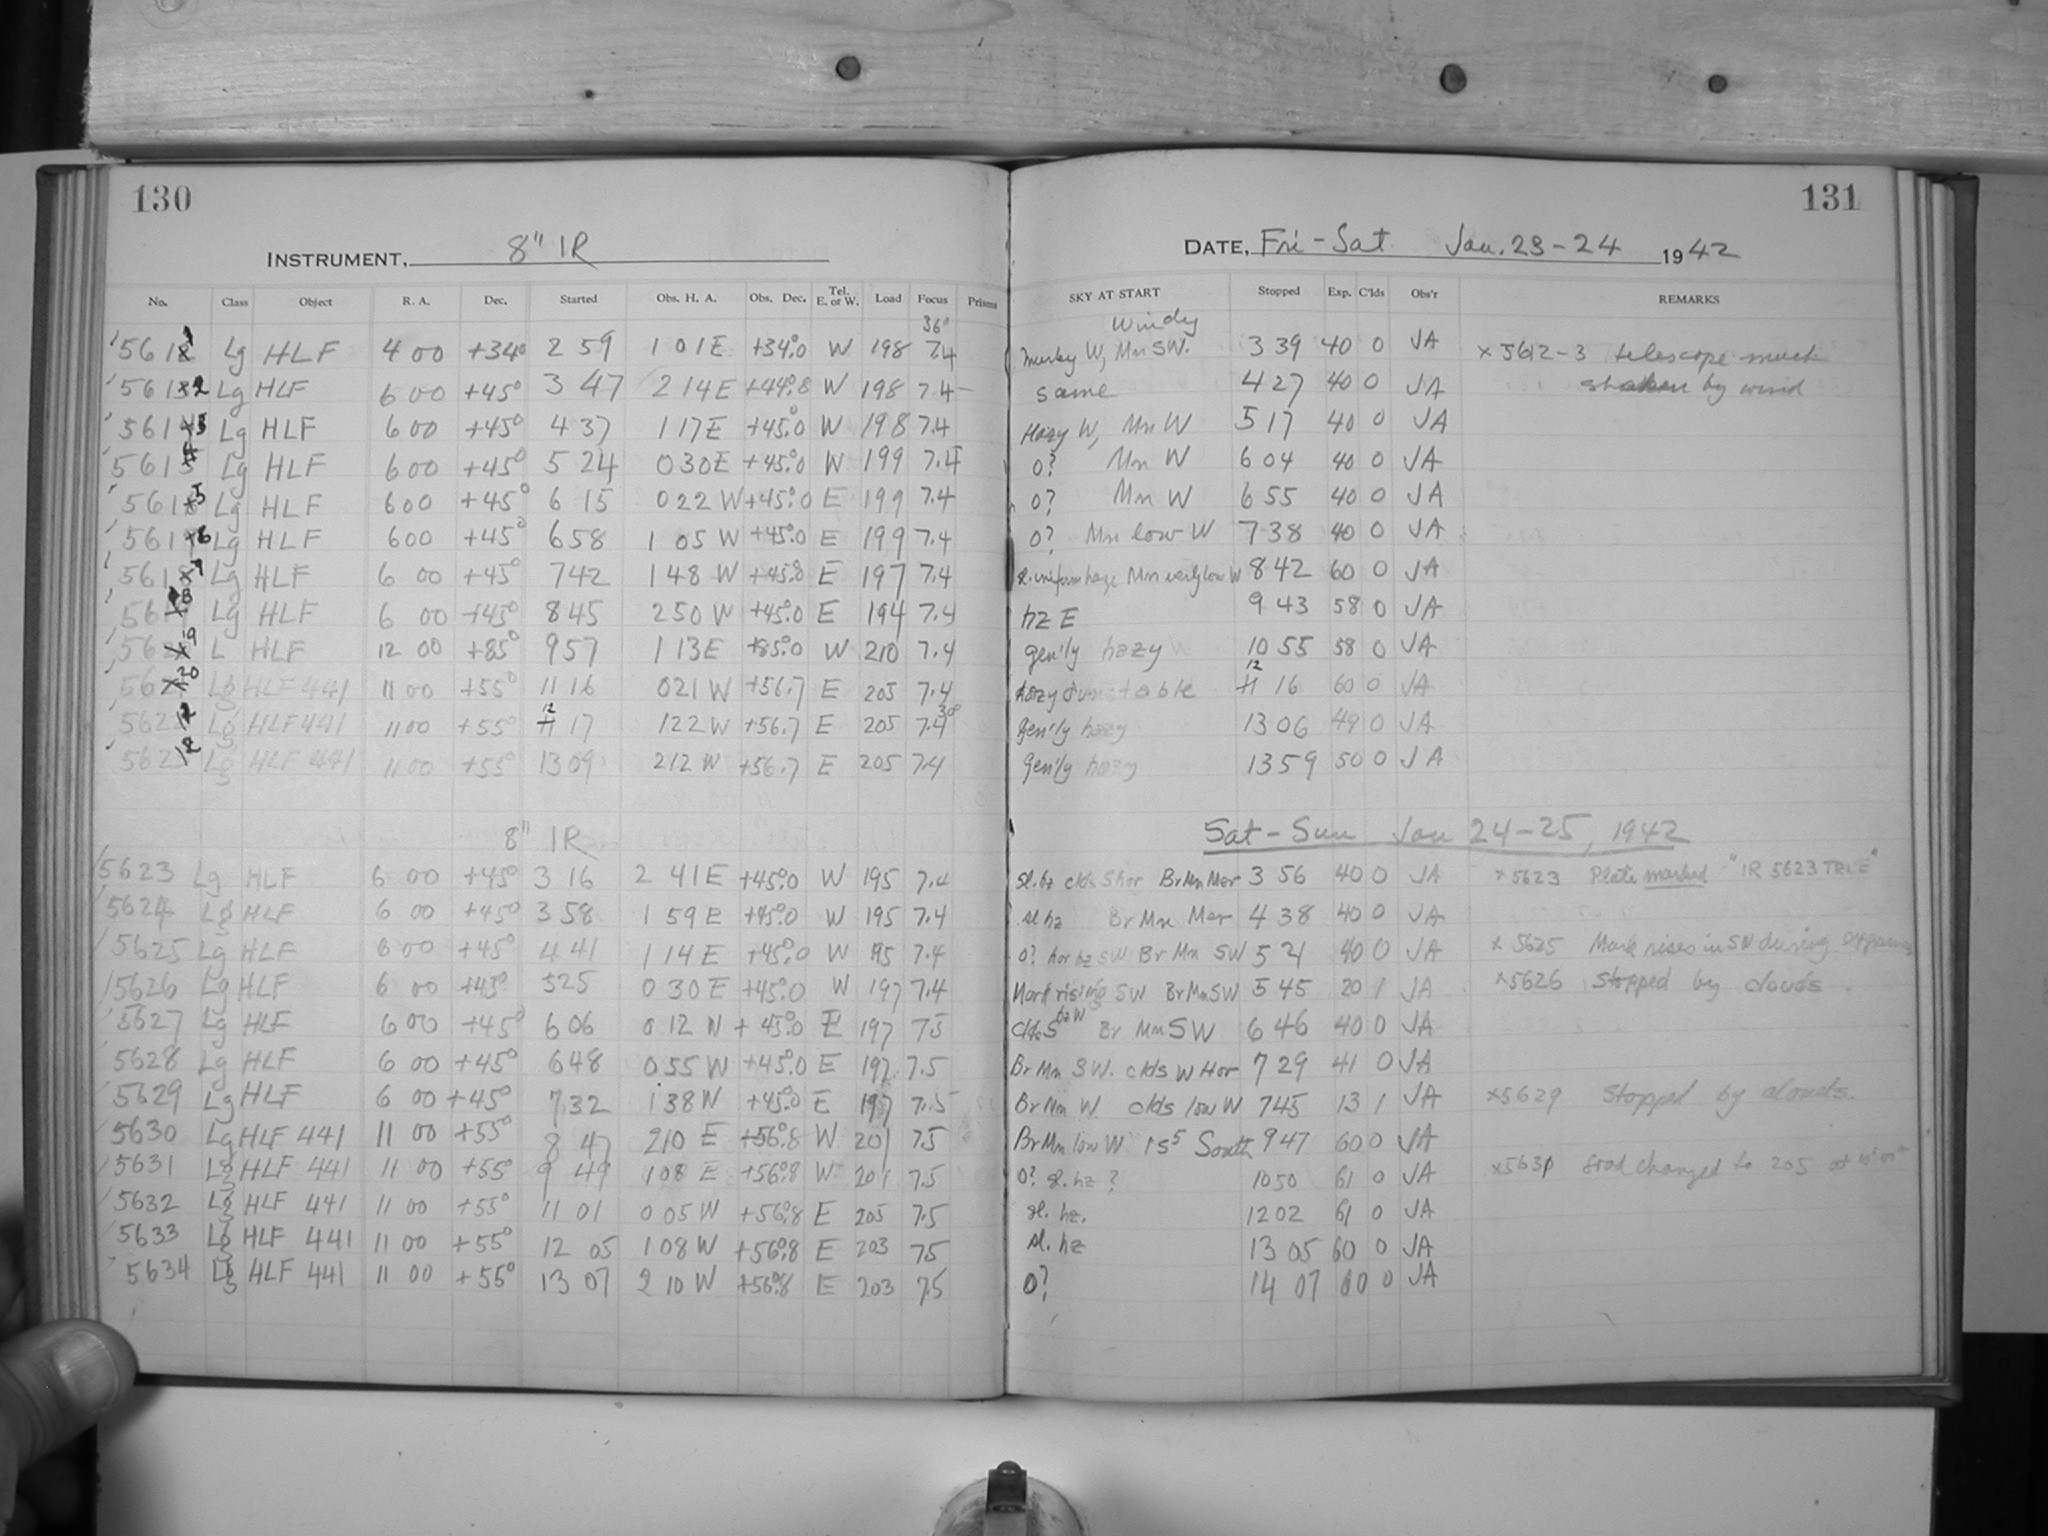 130
131
INSTRUMENT, 8" IR
DATE, Fri - Sat Jan. 23 - 24 1942
No. Class Object R. A. Dec. Started Obs. H. A. Obs. Dec. Tel. E. or W. Load Focus Prisms SKY AT START Stopped Exp. C'lds Obs'r REMARKS
36°
Windy
5611 Lg HLF 4 00 +34° 2 59 1 01 E +34°.0 W 198 7.4 Murky W, Mn SW. 3 39 40 0 JA x 5612-3 telescope much
5612 Lg HLF 6 00 +45° 3 47 2 14 E +44°.8 W 198 7.4 same 4 27 40 0 JA shaken by wind
5613 Lg HLF 6 00 +45° 4 37 1 17 E +45°.0 W 198 7.4 Hazy W, Mn W 5 17 40 0 JA
5614 Lg HLF 6 00 +45° 5 24 0 30 E +45°.0 W 199 7.4 0? Mn W 6 04 40 0 JA
5615 Lg HLF 6 00 +45° 6 15 0 22 W +45°.0 E 199 7.4 0? Mn W 6 55 40 0 JA
5616 Lg HLF 6 00 +45° 6 58 1 05 W +45°.0 E 199 7.4 0? Mn low W 7 38 40 0 JA
5617 Lg HLF 6 00 +45° 7 42 1 48 W +45°.0 E 197 7.4 sl. uniform haze Mn very low W 8 42 60 0 JA
5618 Lg HLF 6 00 +45° 8 45 2 50 W +45°.0 E 194 7.4 hz E 9 43 58 0 JA
5619 L HLF 12 00 +85° 9 57 1 13 E +85°.0 W 210 7.4 gen'ly hazy 10 55 58 0 JA
5620 Lg HLF 441 11 00 +55° 11 16 0 21 W +56.7 E 205 7.4 hazy 12 16 60 0 JA
5621 Lg HLF 441 11 00 +55° 12 17 1 22 W +56.7 E 205 7.4 30° gen'ly hazy 13 06 49 0 JA
5622 Lg HLF 441 11 00 +55° 13 09 2 12 W +56.7 E 205 7.4 gen'ly hazy 13 59 50 0 JA
8" IR Sat - Sun Jan 24-25, 1942
5623 Lg HLF 6 00 +45° 3 16 2 41 E +45°.0 W 195 7.4 sl. hz clds S hor Br Mn Mer 3 56 40 0 JA x 5623 Plate marked "IR 5623 TRUE"
5624 Lg HLF 6 00 +45° 3 58 1 59 E +45°.0 W 195 7.4 sl hz Br Mn Mer 4 38 40 0 JA
5625 Lg HLF 6 00 +45° 4 41 1 14 E +45°.0 W 195 7.4 0? hor hz SW Br Mn SW 5 21 40 0 JA x 5625 Mark rises in SW during exposure
5626 Lg HLF 6 00 +45° 5 25 0 30 E +45°.0 W 197 7.4 Mark rising SW Br Mn SW 5 45 20 1 JA x 5626 Stopped by clouds.
5627 Lg HLF 6 00 +45° 6 06 0 12 W +45°.0 E 197 7.5 Clds S hz W Br Mn SW 6 46 40 0 JA
5628 Lg HLF 6 00 +45° 6 48 0 55 W +45°.0 E 197 7.5 Br Mn SW. clds W Hor 7 29 41 0 JA
5629 Lg HLF 6 00 +45° 7 32 1 38 W +45°.0 E 197 7.5 Br Mn W. clds low W 7 45 13 1 JA x5629 Stopped by clouds.
5630 Lg HLF 441 11 00 +55° 8 47 2 10 E +56°.8 W 201 7.5 Br Mn low W South 9 47 60 0 JA
5631 Lg HLF 441 11 00 +55° 9 49 1 08 E +56°.8 W 201 7.5 0? sl. hz? 10 50 61 0 JA x5631 load changed to 205 at
5632 Lg HLF 441 11 00 +55° 11 01 0 05 W +56°.8 E 205 7.5 sl. hz. 12 02 61 0 JA
5633 Lg HLF 441 11 00 +55° 12 05 1 08 W +56°.8 E 203 7.5 sl. hz 13 05 60 0 JA
5634 Lg HLF 441 11 00 +55° 13 07 2 10 W +56°.8 E 203 7.5 0? 14 07 60 0 JA